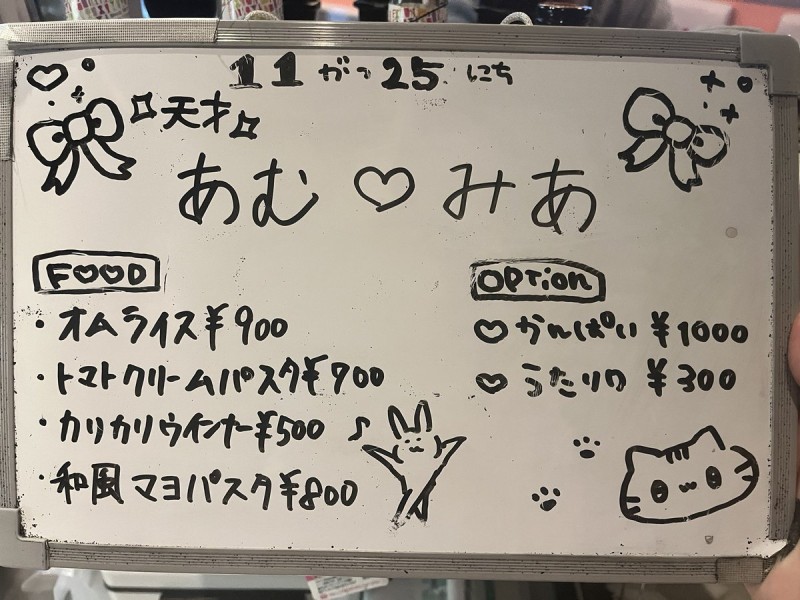 11がつ25にち
天才
あむ♡みあ
FOOD
・オムライス¥900
・トマトクリームパスタ¥900
・カリカリウインナー¥500
・和風マヨパスタ¥800
OPTion
♡かんぱい ¥1000
♡うたリク ¥300